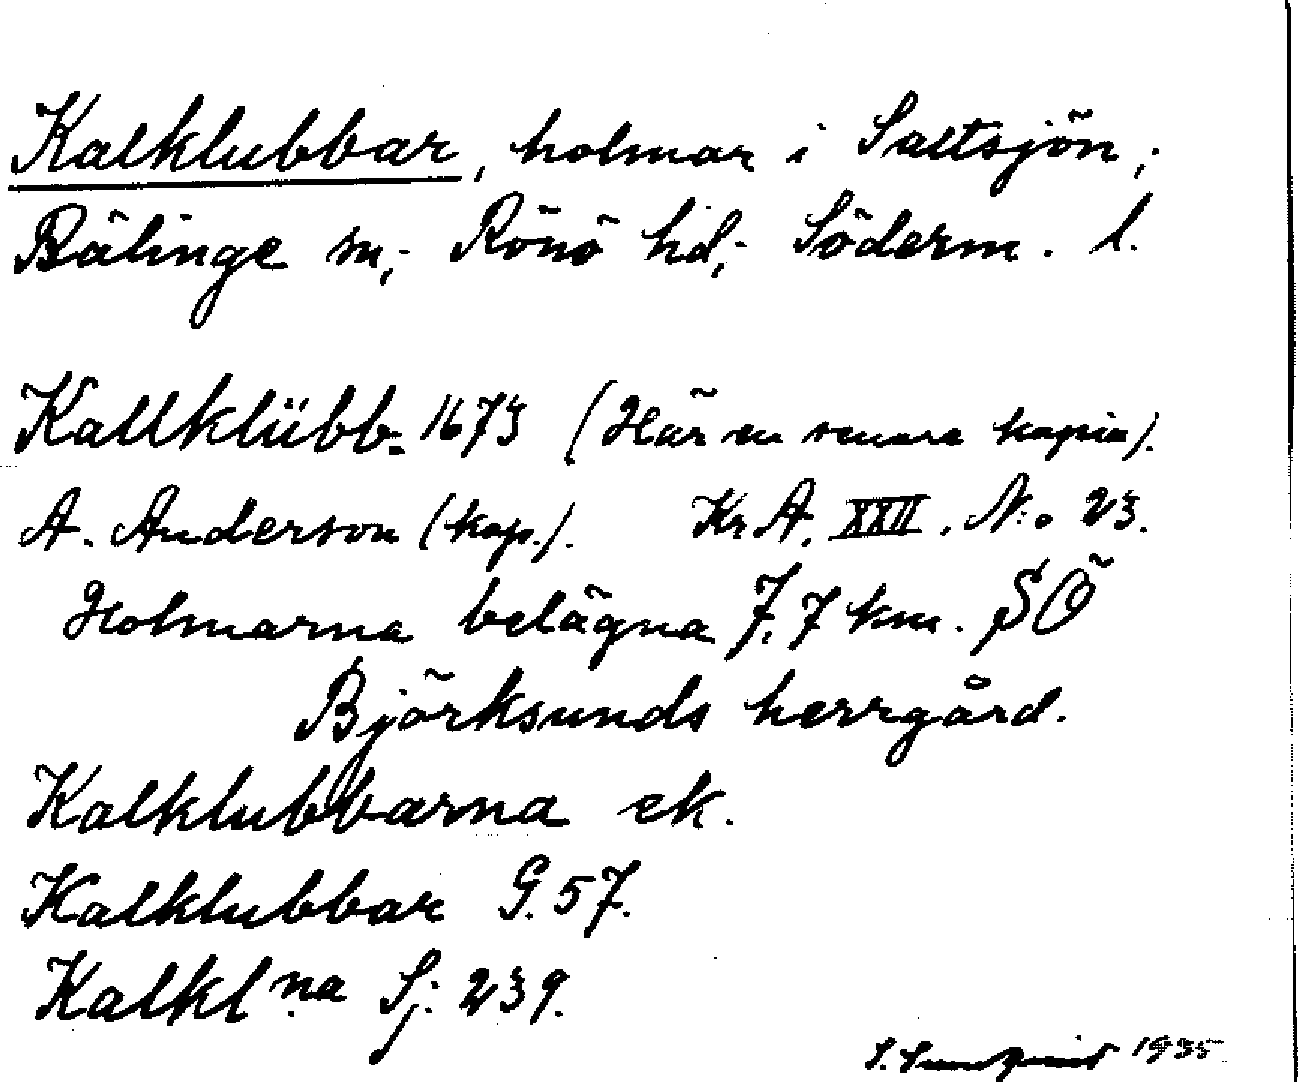 Kalklubbar, holmar i Saltsjön,
Bälinge sn, Rönö hd, Söderm. l.
Kallklübb. 1673 (Här en senare kopia).
A. Anderson (kop.). Kr A. XXII. N:o 23.
Holmarna belägna 7,7 km. SÖ
Björksunds herrgård.
Kalklubbarna ek.
Kalklubbar G. 57.
Kalkl.na Sj: 239.
S. Sundqvist 1935